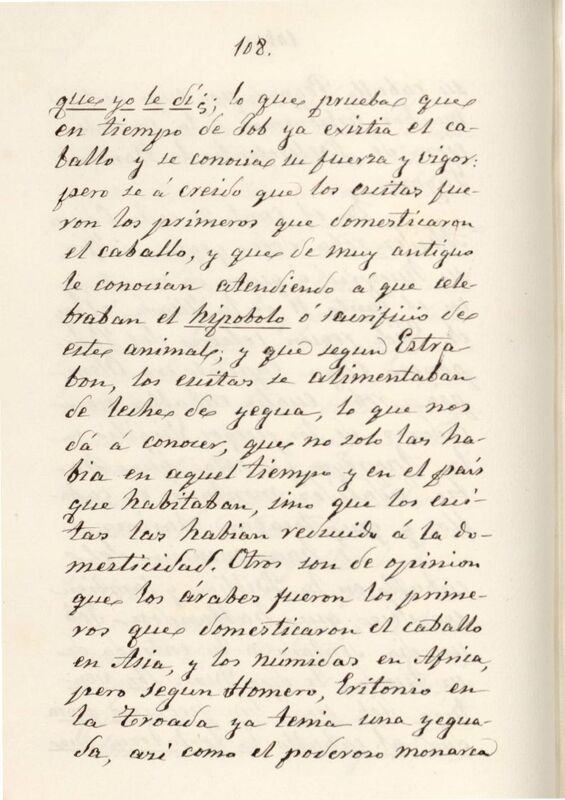 108.
que yo le dí¿; lo que prueba que
en tiempo de Job ya existia el ca-
ballo y se conocia su fuerza y vigor:
pero se á creido que los escitas fue-
ron los primeros que domesticaron
el caballo, y que de muy antiguo
le conocian atendiendo á que cele-
braban el hipobolo ó sacrificio de
este animal; y que segun Estra
bon, los escitas se alimentaban
de leche de yegua, lo que nos
dá á conocer, que no solo las ha-
bia en aquel tiempo y en el pais
que habitaban, sino que los esci-
tas las habian reducido á la do-
mesticidad. Otros son de opinion
que los árabes fueron los prime-
ros que domesticaron el caballo
en Asia, y los númidas en Africa,
pero segun Homero, Eritonio en
la Troada ya tenia una yegua-
da, asi como el poderoso monarca